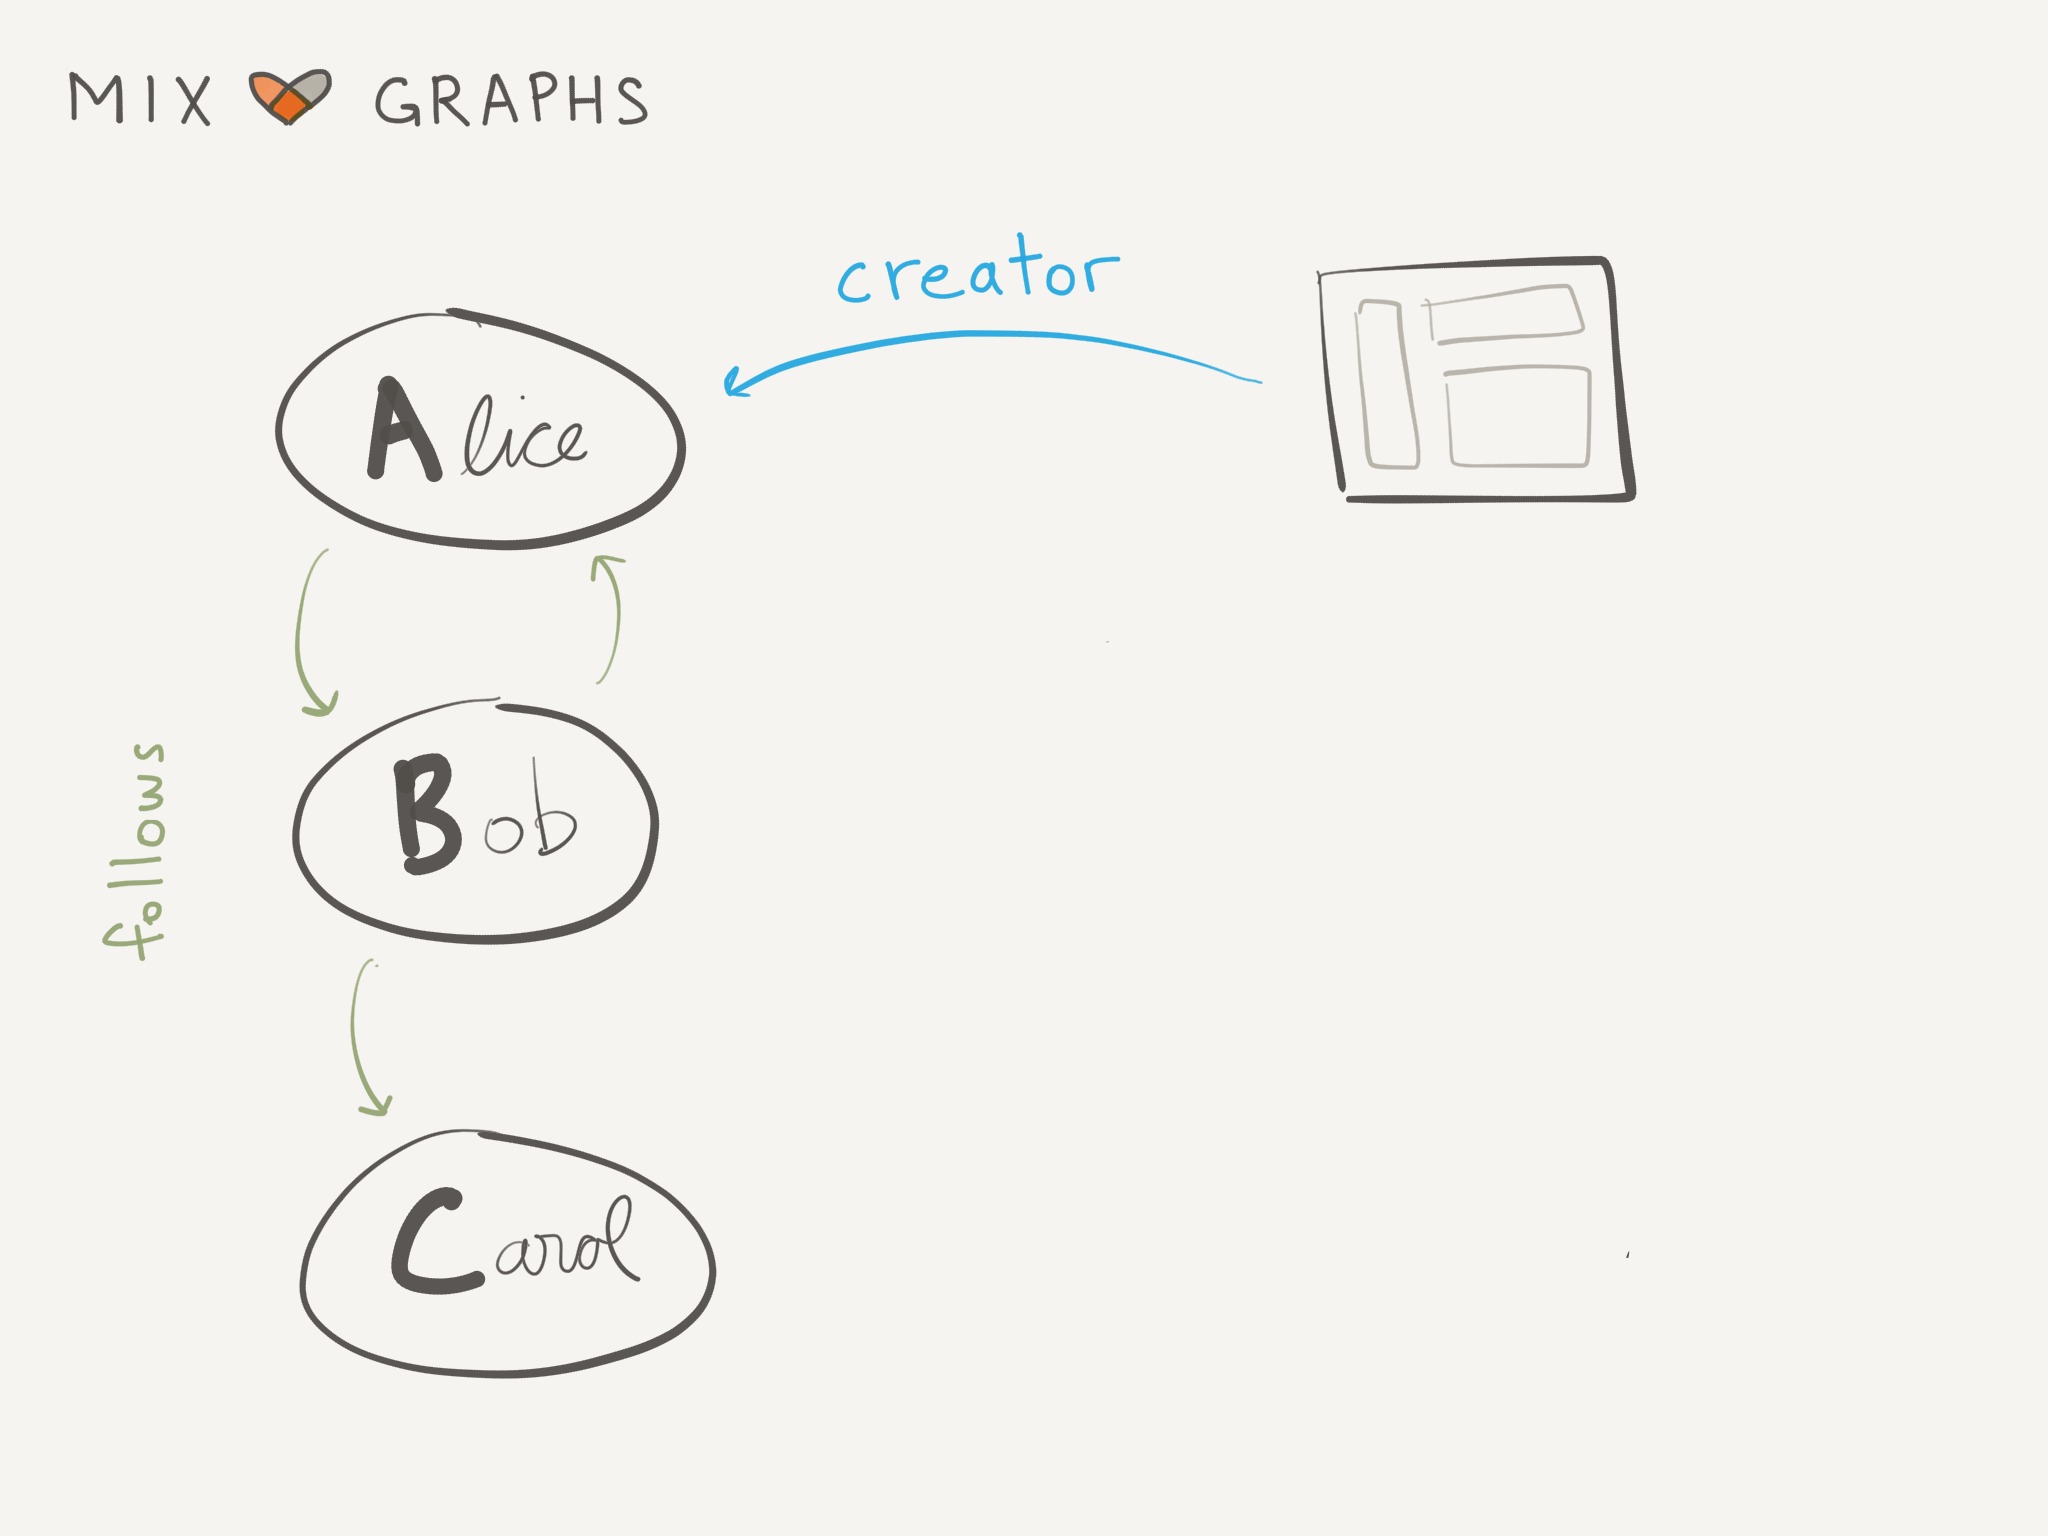 MIX GRAPHS
creator
Alice
follows
Bob
Carol